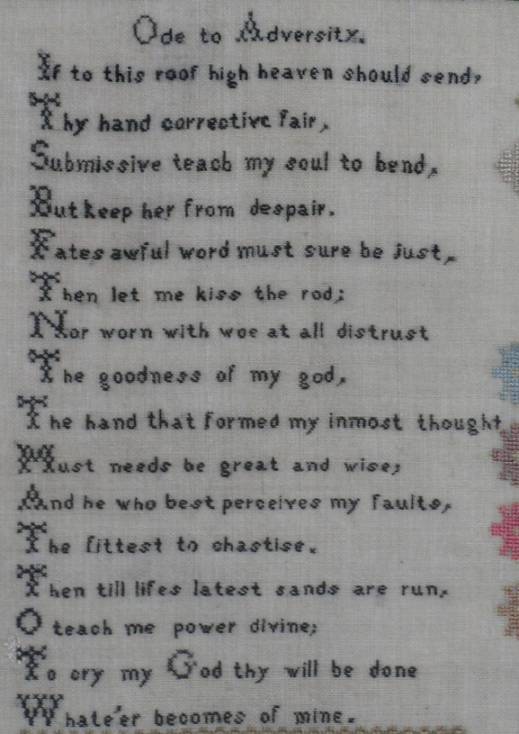 Ode to Adversity.
If to this roof high heaven should send,
Thy hand corrective fair,
Submissive teach my soul to bend,
But keep her from despair.
Fates awful word must sure be just,
Then let me kiss the rod;
Nor worn with woe at all distrust
The goodness of my god,
The hand that formed my inmost thought
Must needs be great and wise;
And he who best perceives my faults,
The fittest to chastise.
Then till lifes latest sands are run,
O teach me power divine;
To cry my God thy will be done
Whate'er becomes of mine.